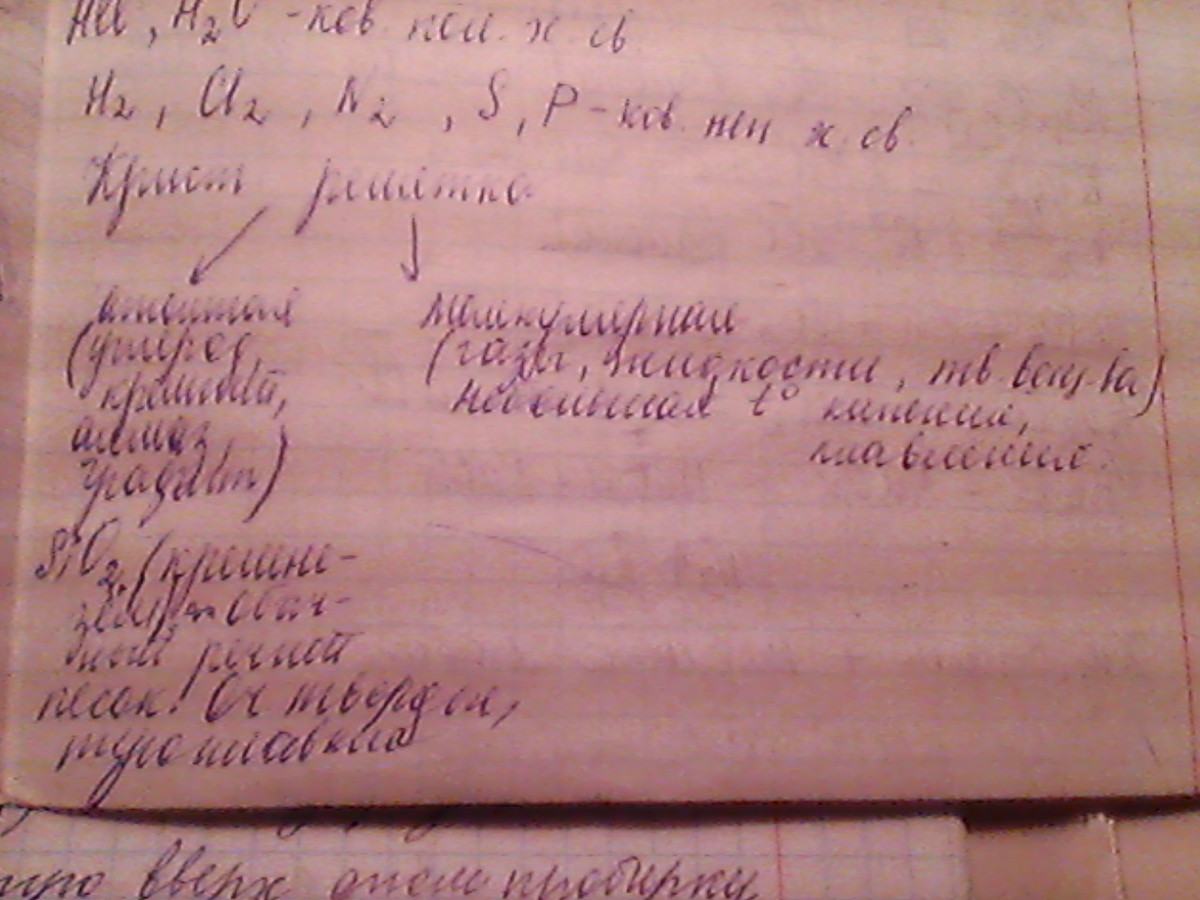 HCl, H₂O - ков. пол. х. св.
H₂, Cl₂, N₂, S, P - ков. неп х. св.
Крист решетка
атомная
(углерод,
кремний,
алмаз,
графит)
молекулярная
(газы, жидкости, тв. вещ-ва)
небольшая t° кипения,
плавления.
SiO₂ (кремне-
зем) обыч-
ный речной
песок. Оч твердая,
тугоплавкая
вверх дном пробирку